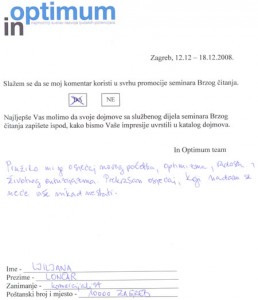 in optimum
Zagreb, 12.12 – 18.12.2008.
Slažem se da se moj komentar koristi u svrhu promocije seminara Brzog čitanja.
DA NE
Najljepše Vas molimo da svoje dojmove sa službenog dijela seminara Brzog
čitanja zapišete ispod, kako bismo Vaše impresije uvrstili u katalog dojmova.
In Optimum team
Pružilo mi je osjećaj novog početka, optimizma, radosti,
životnog entuzijazma. Prekrasan osjećaj, koji nadam se
neće više nikad nestati.
Ime - LJILJANA
Prezime - LONČAR
Zanimanje - komercijalist
Poštanski broj i mjesto - 10000 ZAGREB